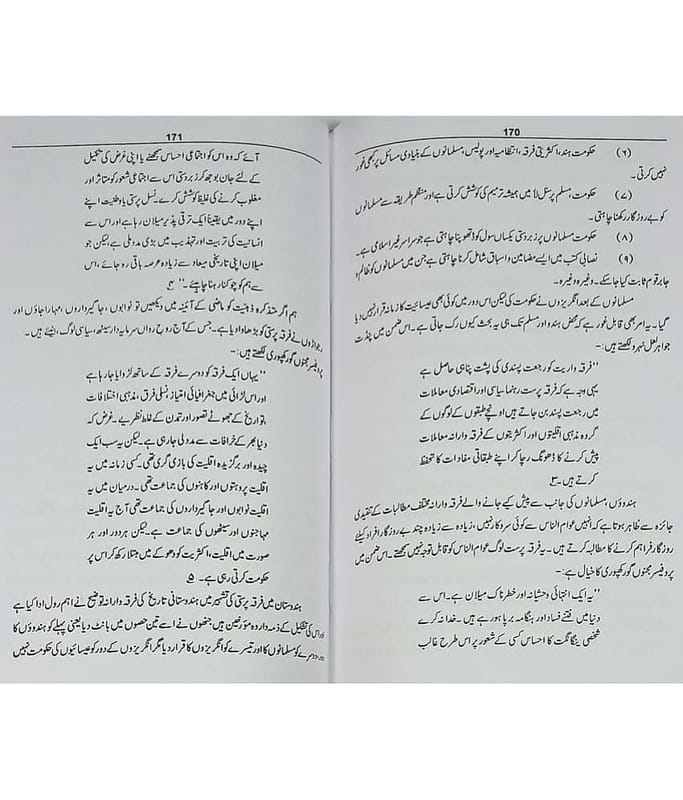 170
(۶) حکومت ہند، اکثریتی فرقہ، انتظامیہ اور پولیس، مسلمانوں کے بنیادی مسائل پر کبھی غور
نہیں کرتی۔
(۷) حکومت، مسلم پرسنل لا میں ہمیشہ ترمیم کی کوشش کرتی ہے اور منظم طریقہ سے مسلمانوں
کو بے روزگار رکھنا چاہتی۔
(۸) حکومت مسلمانوں پر زبردستی یکساں سول کوڈ تھوپنا چاہتی ہے جو سراسر غیر اسلامی ہے۔
(۹) نصابی کتب میں ایسے مضامین و اسباق شامل کرنا چاہتی ہے جن میں مسلمانوں کو ظالم و
جابر قوم ثابت کیا جاسکے۔ وغیرہ وغیرہ۔
مسلمانوں کے بعد انگریزوں نے حکومت کی لیکن اس دور میں کوئی بھی عیسائیت کا زمانہ قرار نہیں دیا
گیا۔ یہ امر بھی قابل غور ہے کہ محض ہندو اور مسلم تک ہی یہ بحث کیوں رک جاتی ہے۔ اس ضمن میں پنڈت
جواہر لعل نہرو لکھتے ہیں:-
"فرقہ واریت کو رجعت پسندی کی پشت پناہی حاصل ہے
یہی وجہ ہے کہ فرقہ پرست رہنما سیاسی اور اقتصادی معاملات
میں رجعت پسند بن جاتے ہیں اونچے طبقوں کے لوگوں کے
گروہ مذہبی اقلیتوں اور اکثریتوں کے فرقہ وارانہ معاملات
پیش کرنے کا ڈھونگ رچا کر اپنے طبقاتی مفادات کا تحفظ
کرتے ہیں۔ ۳
ہندوؤں، مسلمانوں کی جانب سے پیش کیے جانے والے فرقہ وارانہ مختلف مطالبات کے تنقیدی
جائزہ سے ظاہر ہوتا ہے کہ انہیں عوام الناس سے کوئی سروکار نہیں، زیادہ سے زیادہ چند بے روزگار افراد کیلئے
روزگار فراہم کرنے کا مطالبہ کرتے ہیں۔ یہ فرقہ پرست لوگ عوام الناس کو قابل توجہ نہیں سمجھتے۔ اس ضمن میں
پروفیسر مجنوں گورکھپوری کا خیال ہے:-
"یہ ایک انتہائی وحشیانہ اور خطرناک میلان ہے۔ اس سے
دنیا میں فتنے فساد اور ہنگامہ برپا ہو رہے ہیں۔ خدا نہ کرے
شخصی یگانگت کا احساس کسی کے شعور پر اس طرح غالب
171
آئے کہ وہ اس کو اجتماعی احساس سمجھنے یا اپنی غرض کی تکمیل
کے لئے جان بوجھ کر زبردستی اس سے اجتماعی شعور کو متاثر اور
مغلوب کرنے کی غلیظ کوشش کرے۔ نسل پرستی یا وطنیت اپنے
اپنے دور میں یقیناً ایک ترقی پذیر میلان رہا ہے اور اس سے
انسانیت کی تربیت اور تہذیب میں بڑی مدد ملی ہے، لیکن جو
میلان اپنی تاریخی میعاد سے زیادہ عرصہ باقی رہ جائے، اس
سے ہم کو چوکنا رہنا چاہیے۔" ۴
ہم اگر متذکرہ ذہنیت کو ماضی کے آئینہ میں دیکھیں تو نوابوں، جاگیرداروں، مہاراجاؤں اور
رجواڑوں نے فرقہ پرستی کو بڑھاوا دیا ہے۔ جس کے آج روح رواں سرمایہ دار سیٹھ، سیاسی لوگ، بنیئے ہیں۔
پروفیسر مجنوں گورکھپوری لکھتے ہیں:-
"یہاں ایک فرقہ کو دوسرے فرقہ کے ساتھ لڑوایا جا رہا ہے
اور اس لڑائی میں جغرافیائی امتیاز، نسلی فرق، مذہبی اختلافات
، تواریخ کے جھوٹے تصور اور تمدن کے غلط نظریے۔ غرض کہ
دنیا بھر کے خرافات سے مدد لی جا رہی ہے۔ لیکن یہ سب ایک
چیدہ اور برگزیدہ اقلیت کی بازی گری تھی۔ کسی زمانہ میں یہ
اقلیت پروہتوں اور کاہنوں کی جماعت تھی۔ درمیان میں یہ
اقلیت نوابوں اور جاگیرداروں کی جماعت تھی آج یہ اقلیت
مہاجنوں اور سیٹھوں کی جماعت ہے۔ لیکن ہر دور اور ہر
صورت میں اقلیت، اکثریت کو دھوکے میں مبتلا رکھ کر اس پر
حکومت کرتی رہی ہے۔ ۵
ہندوستان میں فرقہ پرستی کی تشہیر میں ہندوستانی تاریخ کی فرقہ وارانہ توضیح نے اہم رول ادا کیا ہے
اور اس کی تشکیل کے ذمہ دار وہ مؤرخین ہیں جنھوں نے اسے تین حصوں میں بانٹ دیا یعنی پہلے کو ہندوؤں کا
دوسرے کو مسلمانوں کا اور تیسرے کو انگریزوں کا قرار دیا مگر انگریزوں کے دور کو عیسائیوں کی حکومت نہیں